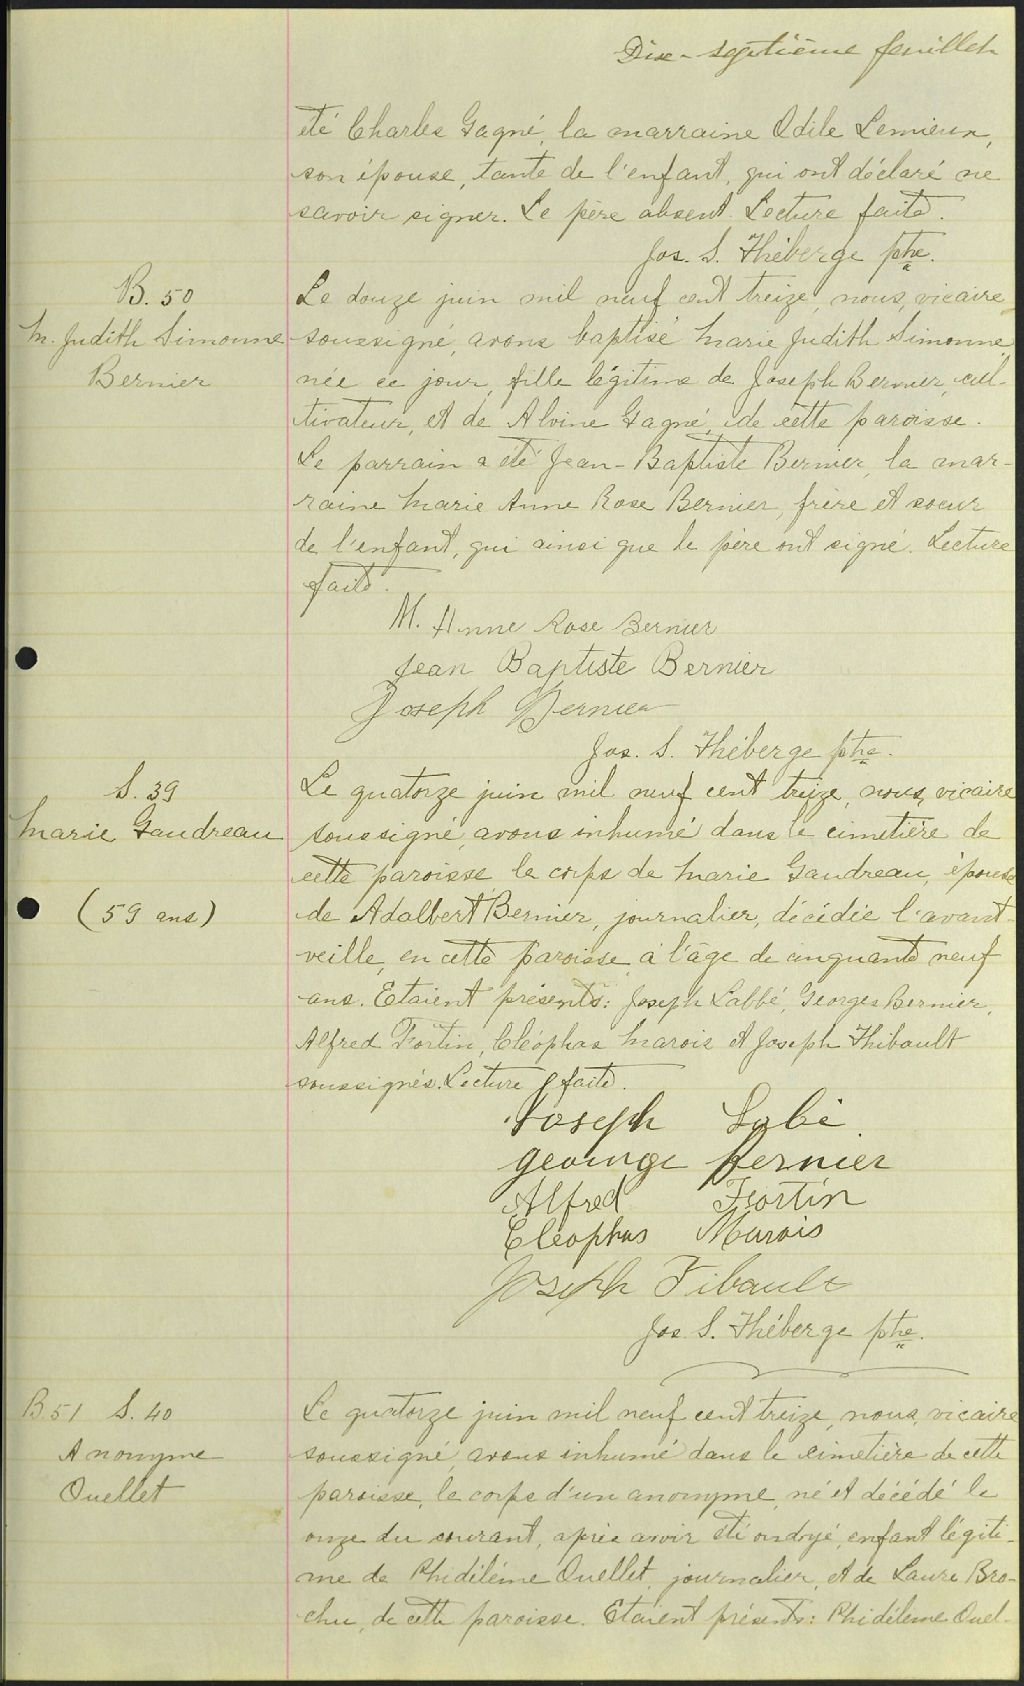 Dix-septième feuillet
été Charles Gagné, la marraine Odile Lemieux,
son épouse, tante de l'enfant, qui ont déclaré ne
savoir signer. Le père absent. Lecture faite.
Jos. S. Théberge ptre.
B. 50
M. Judith Simonne
Bernier
Le douze juin mil neuf cent treize, nous, vicaire
soussigné, avons baptisé Marie Judith Simonne,
née ce jour, fille légitime de Joseph Bernier, cul-
tivateur, et de Alvine Gagné, de cette paroisse.
Le parrain a été Jean-Baptiste Bernier, la mar-
raine Marie Anne Rose Bernier, frère et soeur
de l'enfant, qui ainsi que le père ont signé. Lecture
faite.
M. Anne Rose Bernier
Jean Baptiste Bernier
Joseph Bernier
Jos. S. Théberge ptre.
S. 39
Marie Gaudreau
(59 ans)
Le quatorze juin mil neuf cent treize, nous, vicaire
soussigné, avons inhumé dans le cimetière de
cette paroisse le corps de Marie Gaudreau, épouse
de Adalbert Bernier, journalier, décédée l'avant-
veille, en cette paroisse, à l'âge de cinquante neuf
ans. Etaient présents: Joseph Labbé, Georges Bernier,
Alfred Fortin, Cléophas Marois et Joseph Thibault
soussignés. Lecture faite.
Joseph Labé
Geourge Bernier
Alfred Fortin
Cléophas Marois
Joseph Tibault
Jos S. Théberge ptre.
B. 51 S. 40
Anonyme
Ouellet
Le quatorze juin mil neuf cent treize, nous, vicaire
soussigné, avons inhumé dans le cimetière de cette
paroisse, le corps d'un anonyme, né et décédé le
onze du courant, après avoir été ondoyé, enfant légiti-
me de Phidélème Ouellet, journalier, et de Laure Bro-
chu, de cette paroisse. Etaient présents: Phidélème Ouel-